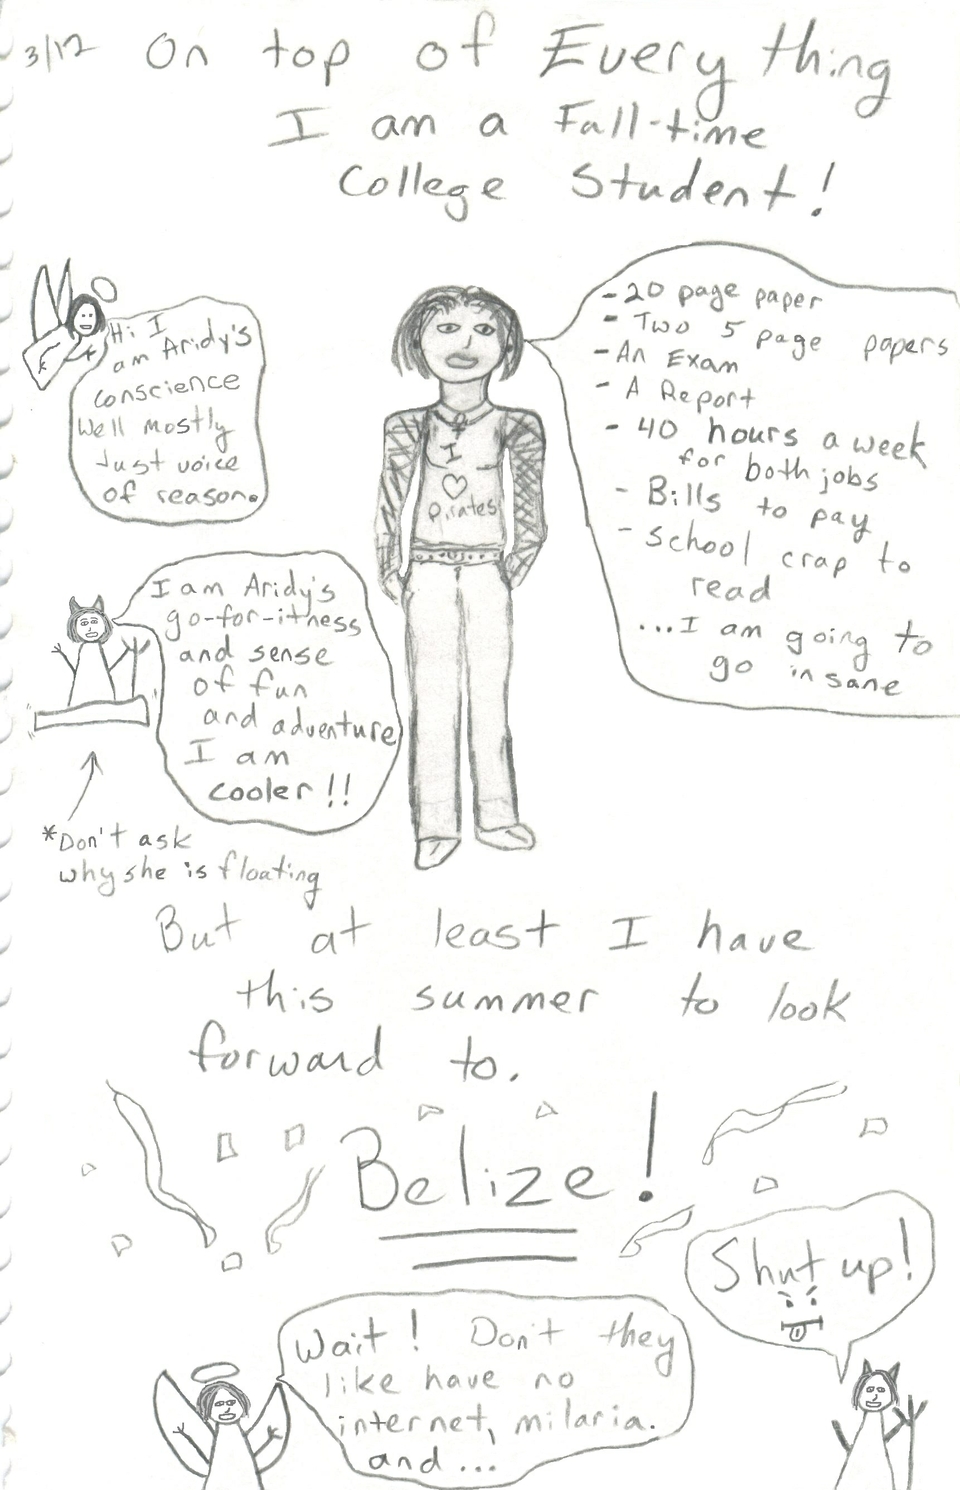 3/12 On top of Everything
I am a Full-time
College Student!
Hi I
am Aridy's
conscience
Well mostly
Just voice
of reason.
I
♡
Pirates
- 20 page paper
- Two 5 page papers
- An Exam
- A Report
- 40 hours a week
for both jobs
- Bills to pay
- school crap to
read
...I am going to
go insane
I am Aridy's
go-for-itness
and sense
of fun
and adventure
I am
cooler!!
*Don't ask
why she is floating
But at least I have
this summer to look
forward to.
Belize!
Shut up!
Wait! Don't they
like have no
internet, milaria.
and...